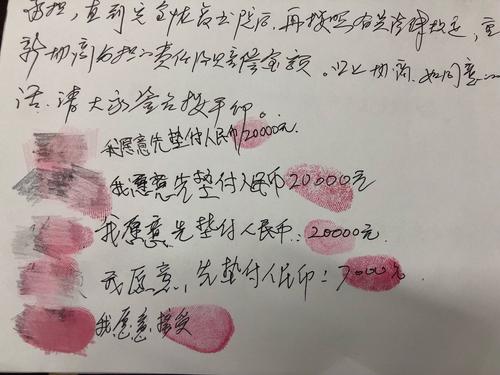 再按照有关法律规定，重
新协商各担的责任及赔偿金额。以上协商，如同意的
话，请大家签名按手印。
我愿意先垫付人民币20000元.
我愿意先垫付人民币20000元
我愿意先垫付人民币：20000元.
我愿意，先垫付人民币：7000元.
我愿意接受